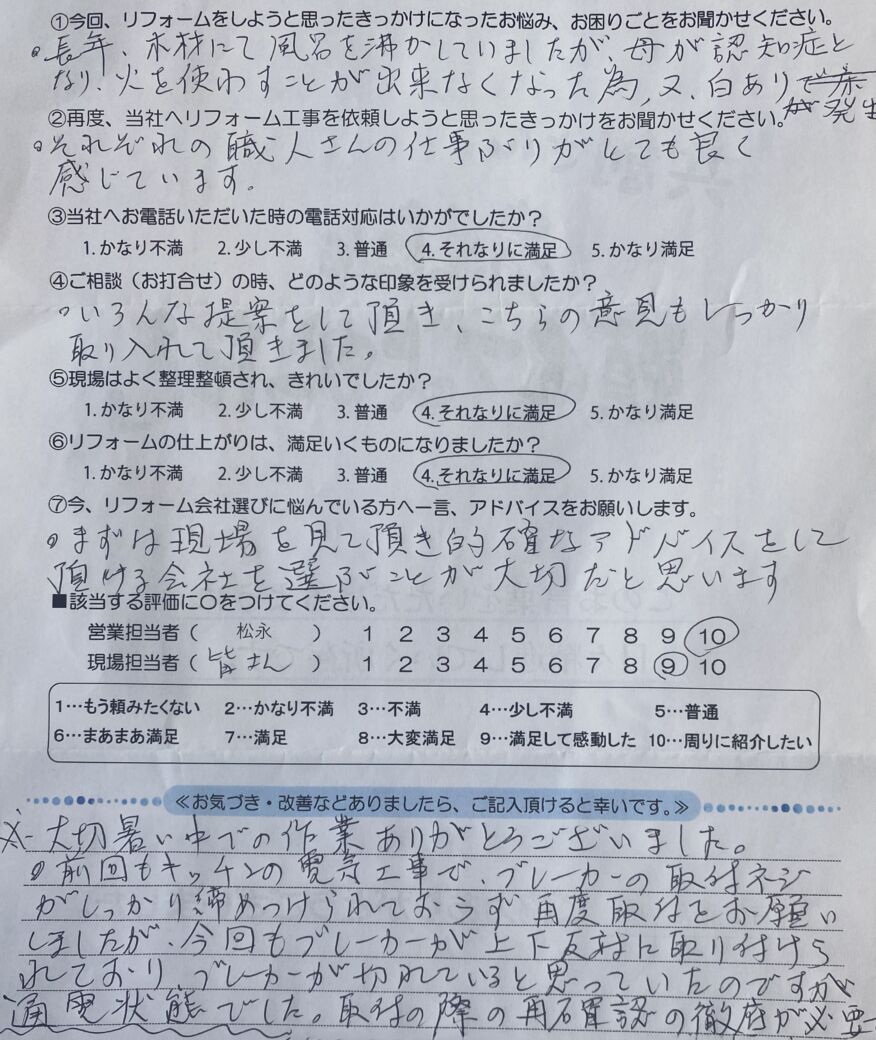 ①今回、リフォームをしようと思ったきっかけになったお悩み、お困りごとをお聞かせください。
。長年、木材にて風呂を沸かしていましたが、母が認知症と
なり、火を使わすことが出来なくなった為、又、白あり
が発生
②再度、当社へリフォーム工事を依頼しようと思ったきっかけをお聞かせください。
。それぞれの職人さんの仕事ぶりがとても良く
感じています。
③当社へお電話いただいた時の電話対応はいかがでしたか？
1.かなり不満 2.少し不満 3.普通 4.それなりに満足 5.かなり満足
④ご相談（お打合せ）の時、どのような印象を受けられましたか？
。いろんな提案をして頂き、こちらの意見もしっかり
取り入れて頂きました。
⑤現場はよく整理整頓され、きれいでしたか？
1.かなり不満 2.少し不満 3.普通 4.それなりに満足 5.かなり満足
⑥リフォームの仕上がりは、満足いくものになりましたか？
1.かなり不満 2.少し不満 3.普通 4.それなりに満足 5.かなり満足
⑦今、リフォーム会社選びに悩んでいる方へ一言、アドバイスをお願いします。
。まずは現場を見て頂き的確なアドバイスをして
頂ける会社を選ぶことが大切だと思います
■該当する評価に○をつけてください。
営業担当者（ 松永 ） 1 2 3 4 5 6 7 8 9 10
現場担当者（ 皆さん ） 1 2 3 4 5 6 7 8 9 10
1…もう頼みたくない 2…かなり不満 3…不満 4…少し不満 5…普通
6…まあまあ満足 7…満足 8…大変満足 9…満足して感動した 10…周りに紹介したい
≪お気づき・改善などありましたら、ご記入頂けると幸いです。≫
※大切暑い中での作業ありがとうございました。
。前回もキッチンの電気工事で、ブレーカーの取付ネジ
がしっかり締めつけられておらず再度取付をお願い
しましたが、今回もブレーカーが上下反対に取り付けら
れており、ブレーカーが切れていると思っていたのですが
通電状態でした。取付の際の再確認の徹底が必要